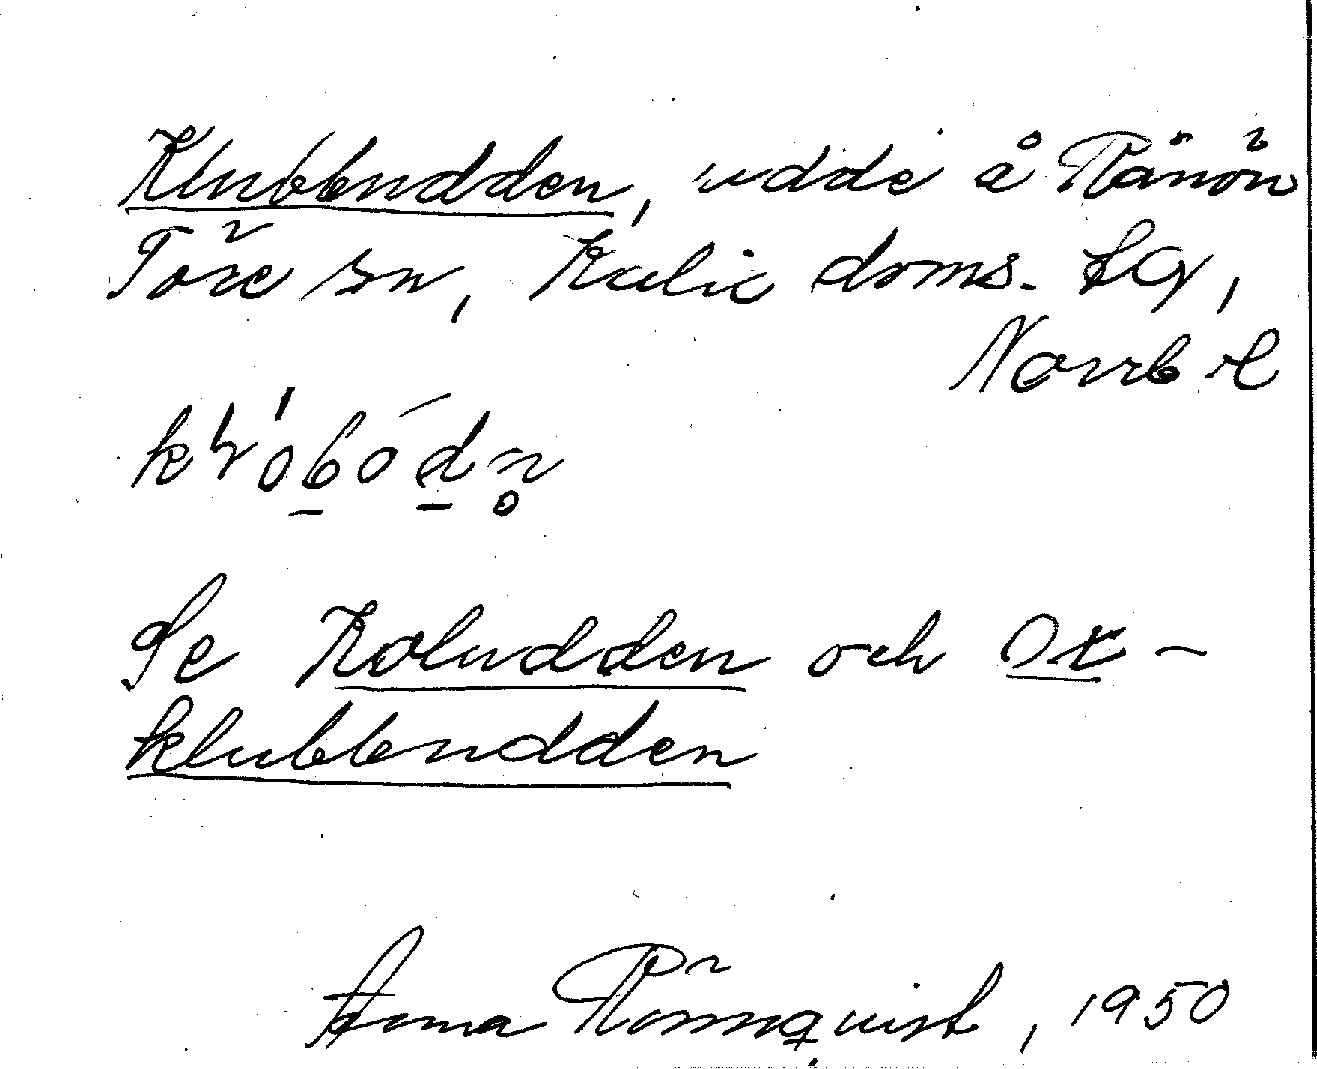 Klubbudden, udde å Rånön
Töre sn, Kalix doms. lg,
Norrb l
Se Koludden och Ox-
klubbudden
Anna Rönnquist, 1950